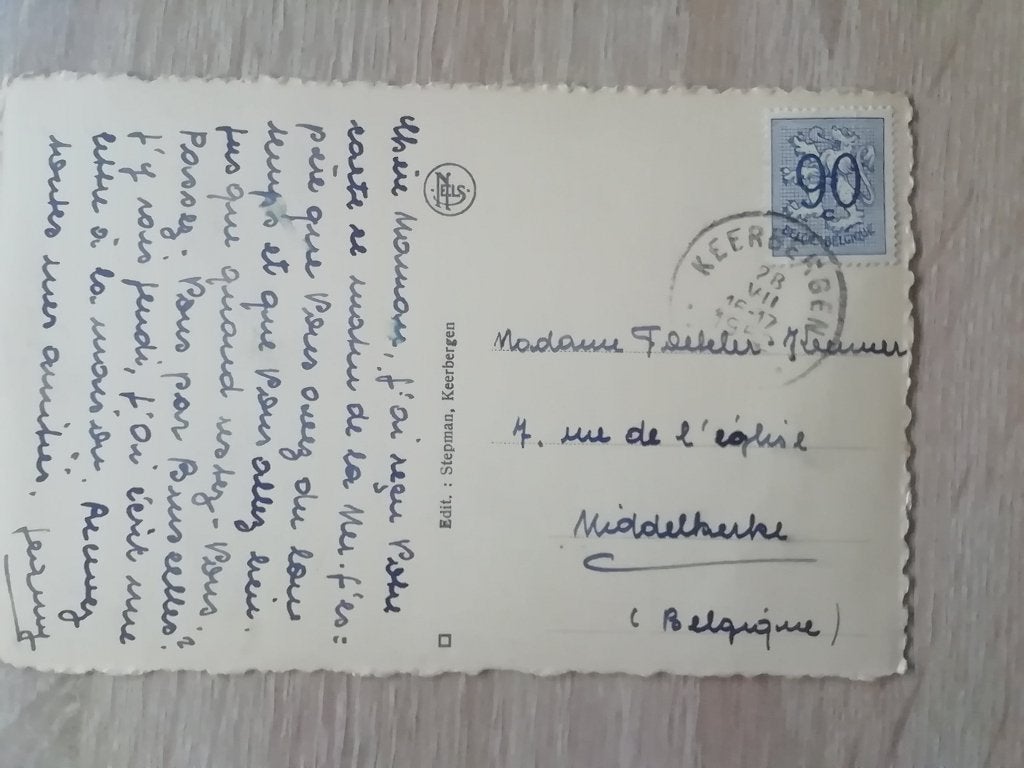 Chère Maman, j'ai reçu Votre
carte ce matin de la Mer. J'es:
père que Vous avez du bon
temps et que Vous allez bien.
Jusque quand restez-Vous.
Passez-Vous par Bruxelles?
J'y suis jeudi, j'ai écrit une
lettre à la maison. Recevez
toutes mes amitiés.
NELS
Edit. : Stepman, Keerbergen
90
c
BELGIE-BELGIQUE
KEERBERGEN
28
VII
16-17
Madame
7. rue de l'église
Middelkerke
(Belgique)